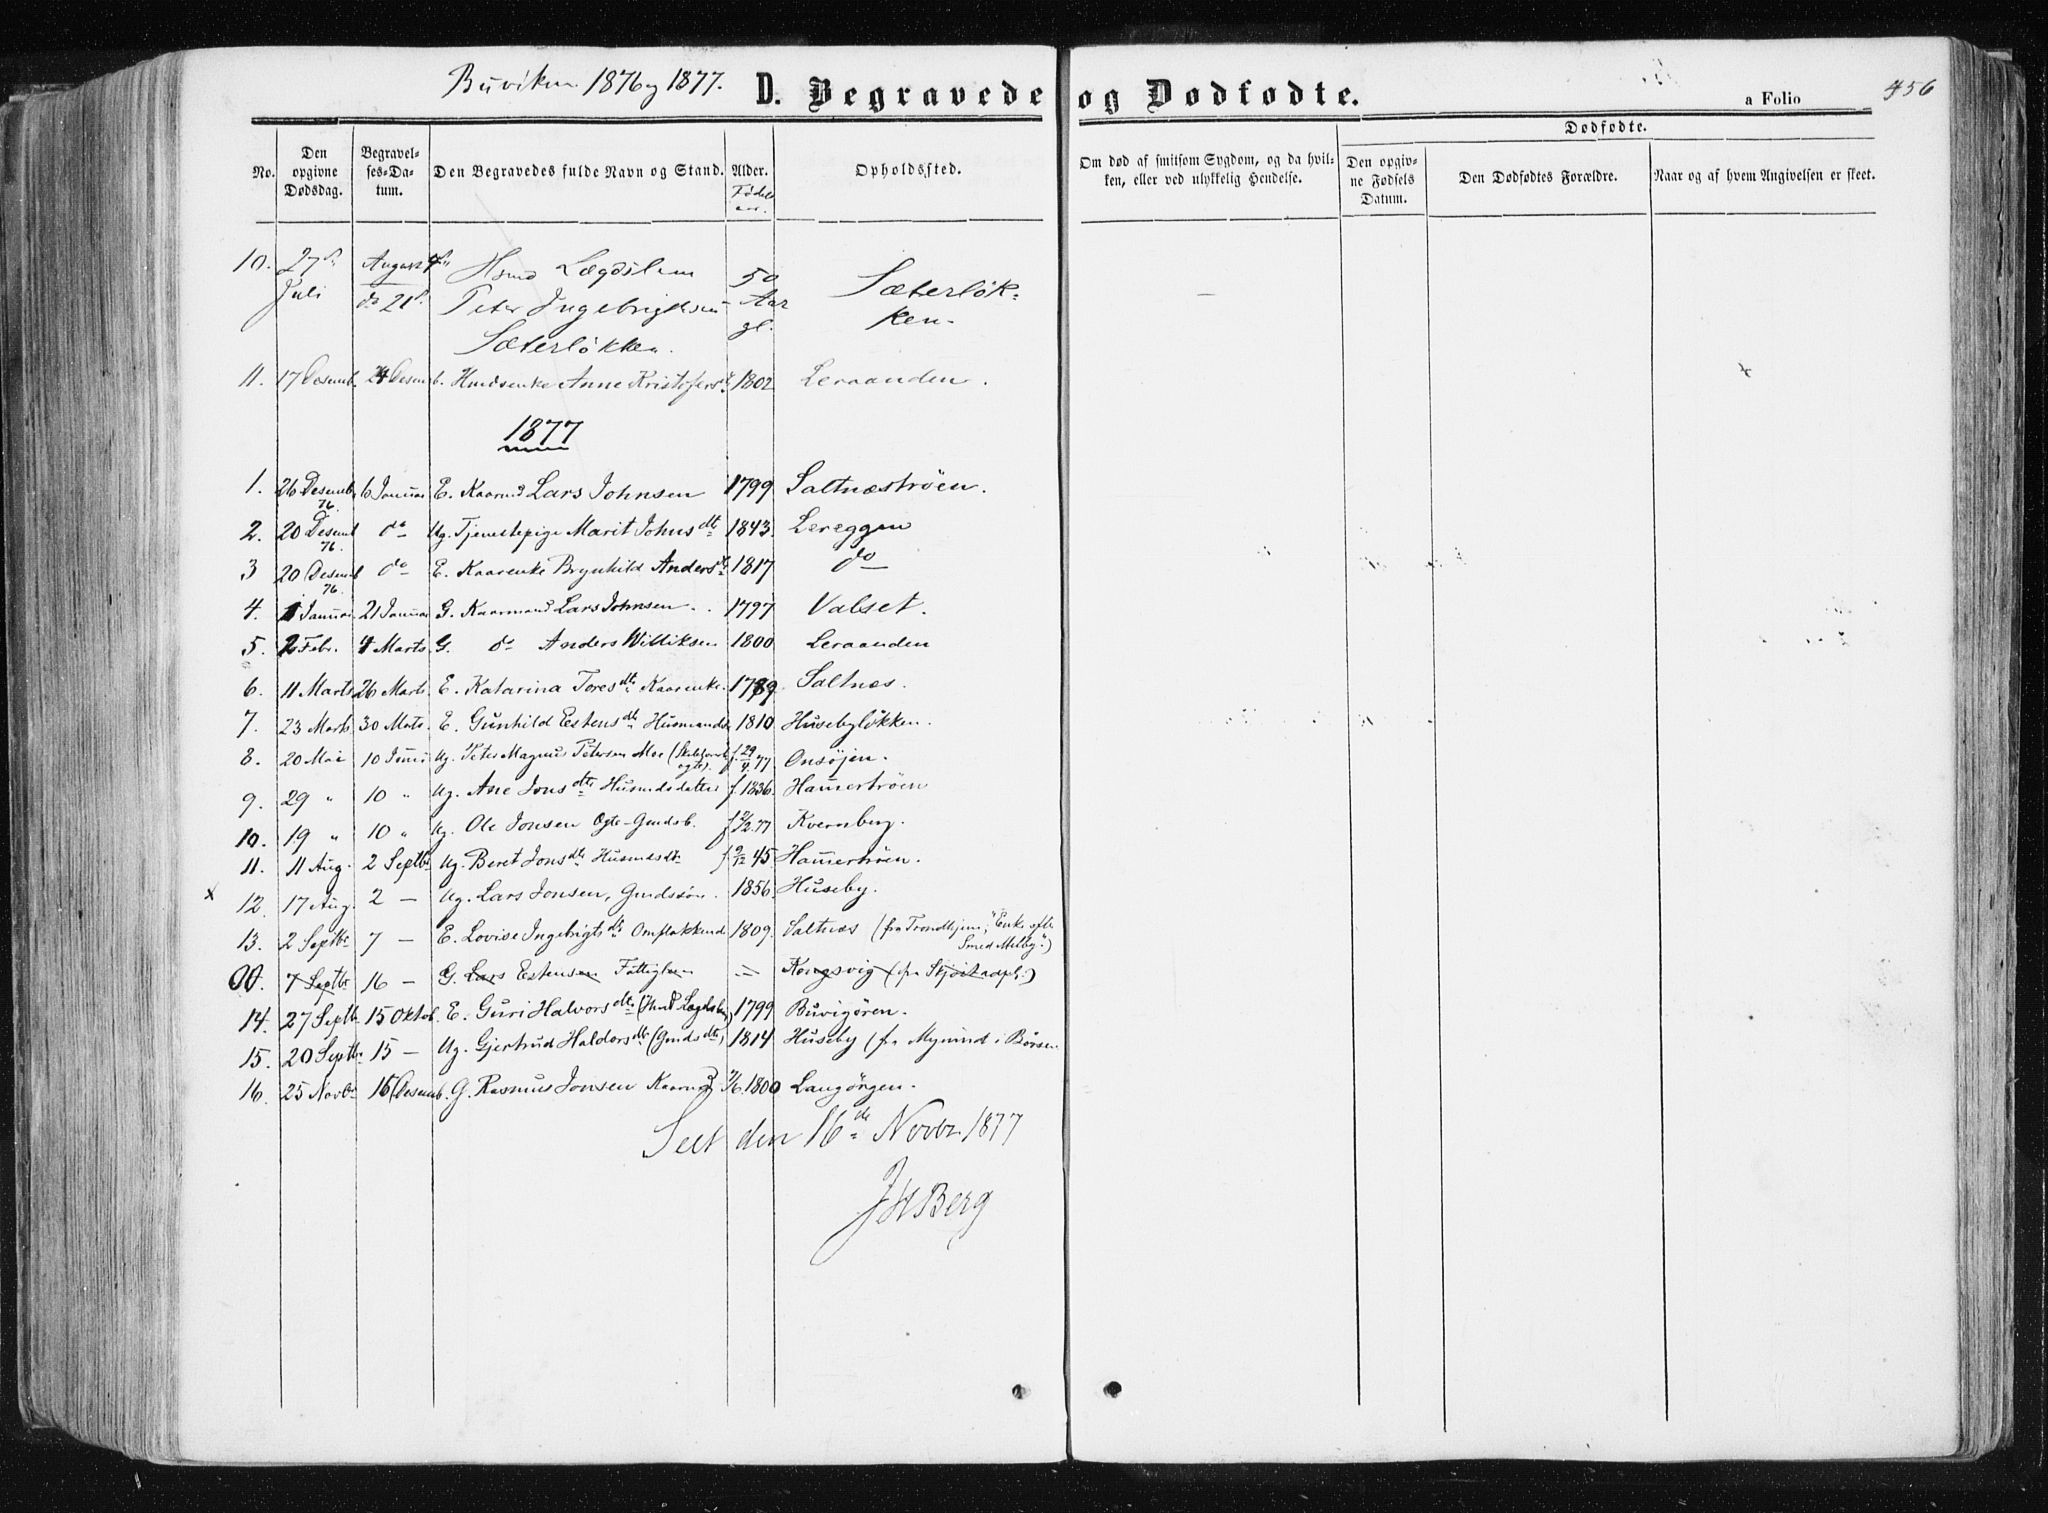 Buviken 1876 og 1877. D. Begravede og Dødfødte. a Folio 456
Dødfødte.
No. Den opgivne Dødsdag. Begravelses-Datum. Den Begravedes fulde Navn og Stand. Alder. Opholdssted. Om død af smitsom Sygdom, og da hvilken, eller ved ulykkelig Hendelse. Den opgivne Fødsels Datum. Den Dødfødtes Forældre. Naar og af hvem Angivelsen er skeet.
Fødels aar.
10. 27de August Hsmd Lægdslem 50 Sæterløk-
Juli do 21de Peter Ingebrigtsen Aar ken. —
Sæterløkken. gl.
11. 17 Desemb. 24 Desemb. Hmdsenke Anne Kristofersd 1802 Leraanden.
1877
1. 26 Desemb 76. 6 Januar E. Kaarmd Lars Johnsen 1799 Saltnæstrøen.
2. 20 Desemb 76. do Ug. Tjenestepige Marit Johnsdtr 1843. Lereggen
3 20 Desemb 76. do E. Kaarenke Brynhild Andersd 1817 do
4. 1 Januar 21 Januar G. Kaarmand Lars Johnsen. 1797 Valset.
5. 2 Febr. 4 Marts G. do Anders Williksen 1800 Leraanden
6. 11 Marts 26 Marts E. Katarina Toresdtr Kaarenke. 1789. Saltnes.
7. 23 Marts 30 Mats. E. Gunhild Estensdtr Husmands 1810 Husebyløkken.
8. 20 Mai 10 Juni Ug. Peter Magnus Petersen Moe f. 29/4.77 Onsøjen.
9. 29 " 10 " Ug. Ane Jonsdtr Husmdsdatter f. 1836. Hamertrøen
10. 19 " 10 " Ug. Ole Jonsen Ægte-Gmdsb. f 2/2.77 Kvernberg.
11. 11 Aug. 2 Septbr Ug. Beret Jonsdtr Husmdsdtr f. 9/12 45 Hamertrøen.
x 12. 17 Aug. 2 — Ug. Lars Jonsen, Gmdssøn. 1856. Huseby.
13. 2 Septbr 7 — E. Lovise Ingebrigtsdtr Omflakkende 1809. Saltnæs (fra Trondhjem, "Enke efter
Smed Melby".)
00. 7 Septbr 16 — G. Lars Estensen Fattiglem = Kongsvig (fra Skjøitadpl.)
14. 27 Septbr 15 Oktob. E. Guri Halvorsdtr (Hmd Lægdsl) 1799 Buvigøren.
15. 20 Septbr 15 — Ug. Gjertrud Haldorsdtr (Gmdsdtr) 1814 Huseby (fra Myrind i Børsen
16. 25 Novbr 16 Desemb. G. Rasmus Jonsen Kaarmd 7/6.1800 Langørgen.
Seet den 16de Novbr 1877
JHBerg